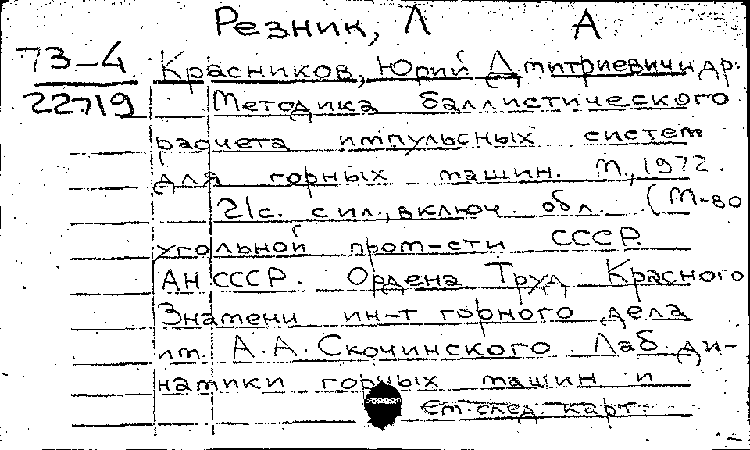 Резник, Л А
73-4
22719
Красников, Юрий Дмитриевич и др.
Методика баллистического
расчета импульсных систем
для горных машин. М., 1972.
21с. с ил., включ. обл. (М-во
угольной пром-сти СССР.
АН СССР. Ордена Труд Красного
Знамени ин-т горного дела
им. А.А. Скочинского. Лаб. ди-
намики горных машин и
См. след. карт.